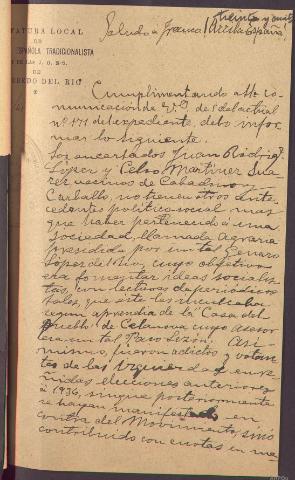 treinta y siete
Saludo a Franco! ¡Arriba España!
FATURA LOCAL
DE
ESPAÑOLA TRADICIONALISTA
DE LAS J. O. N-S.
DE
REDO DEL RIO
Cumplimentando atto co-
municación de V.º de 1 del actual
nº 171 del expediente, debo infor-
mar lo siguiente.
Los encartados Juan Rodrigz
López y Celso Martinez Sua-
rez vecinos de
Carballo, no tienen otros ante-
cedentes politico-social mas
que haber pertenecido á una
sociedad llamada agraria
presidida por un tal Genaro
López de cuyo objetivo
era fomentar ideas socialis-
tas, con lecturas de periódicos
tales, que éste les inculcaba
segun aprendia de la "Casa del
Pueblo" de Celanova cuyo asesor
era un tal Asi-
mismo, fueron adictos y votan-
tes de las Izquierdas en re-
ñidas elecciones anteriores
á 1936, sin que posteriormente
se hayan manifestado en
contra del Movimiento, sinó
contribuido con cuotas en me-